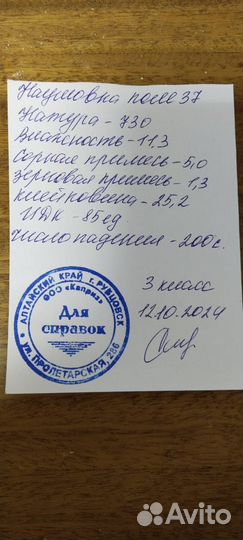 Наумовка поле 37
Натура - 730
Влажность - 11,3
Сорная примесь - 5,0
Зерновая примесь - 1,3
Клейковина - 25,2
ИДК - 85 ед.
Число падения - 200 с.
3 класс
12.10.2024
АЛТАЙСКИЙ КРАЙ г. РУБЦОВСК
ООО «Каприз»
Для
справок
ул. ПРОЛЕТАРСКАЯ, 286
Avito